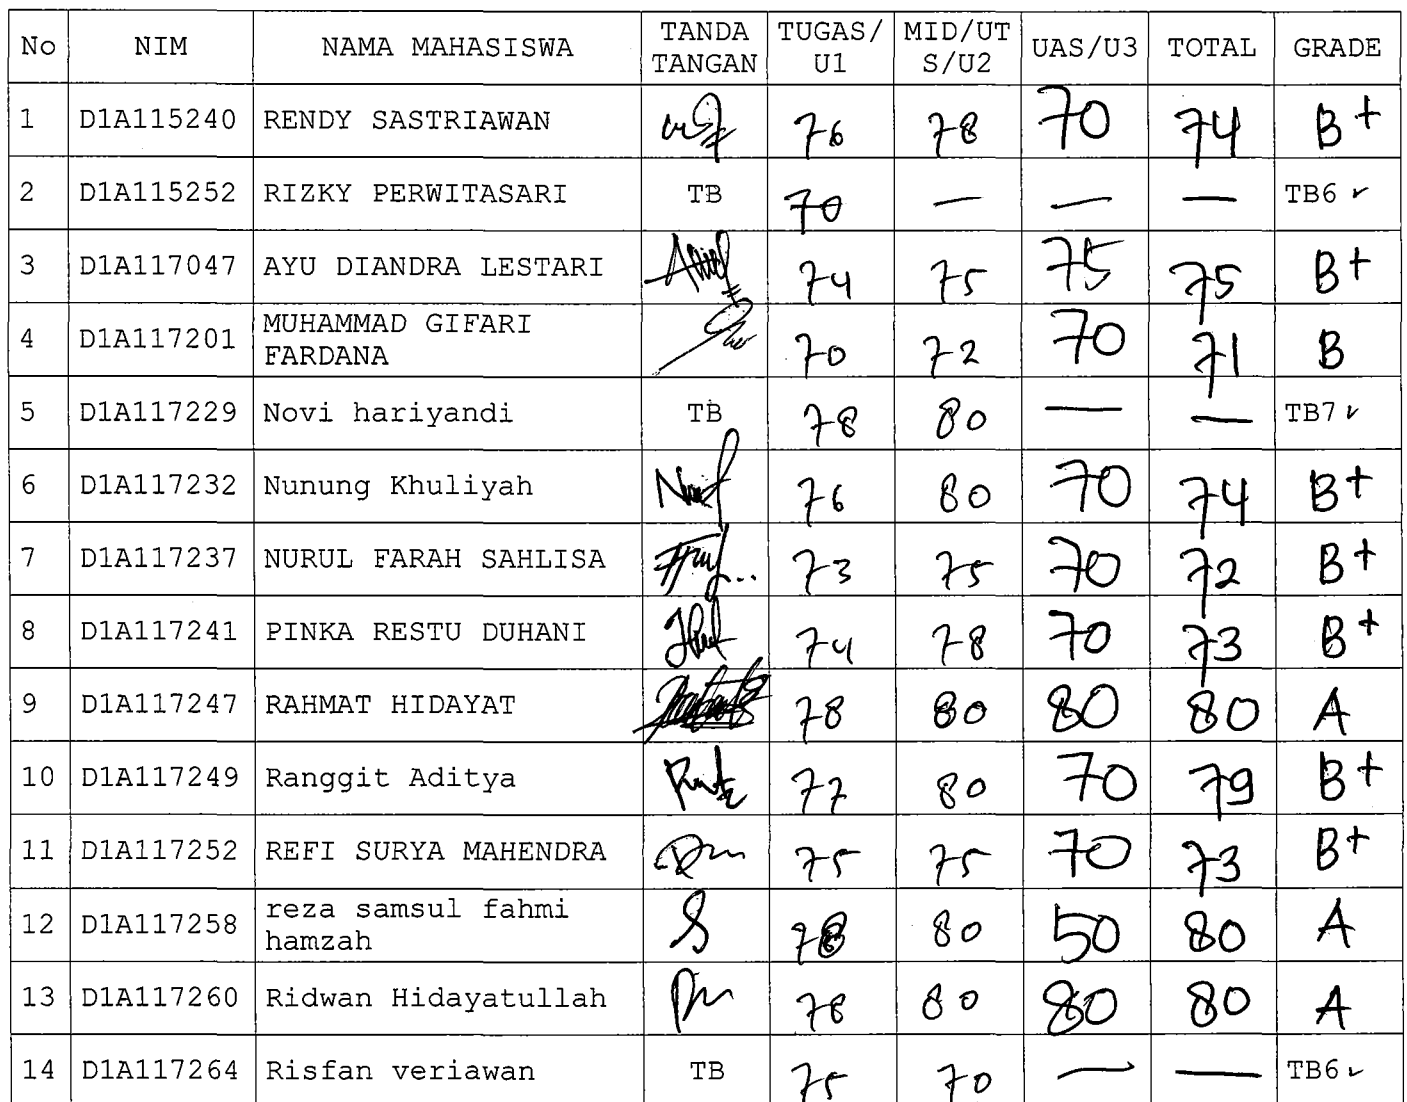 No NIM NAMA MAHASISWA TANDA TANGAN TUGAS/U1 MID/UTS/U2 UAS/U3 TOTAL GRADE
1 D1A115240 RENDY SASTRIAWAN 76 78 70 74 B+
2 D1A115252 RIZKY PERWITASARI TB 70 — — — TB6 ✓
3 D1A117047 AYU DIANDRA LESTARI 74 75 75 75 B+
4 D1A117201 MUHAMMAD GIFARI FARDANA 70 72 70 71 B
5 D1A117229 Novi hariyandi TB 78 80 — — TB7 ✓
6 D1A117232 Nunung Khuliyah 76 80 70 74 B+
7 D1A117237 NURUL FARAH SAHLISA 73 75 70 72 B+
8 D1A117241 PINKA RESTU DUHANI 74 78 70 73 B+
9 D1A117247 RAHMAT HIDAYAT 78 80 80 80 A
10 D1A117249 Ranggit Aditya 77 80 70 79 B+
11 D1A117252 REFI SURYA MAHENDRA 75 75 70 73 B+
12 D1A117258 reza samsul fahmi hamzah 78 80 50 80 A
13 D1A117260 Ridwan Hidayatullah 78 80 80 80 A
14 D1A117264 Risfan veriawan TB 75 70 — — TB6 ✓